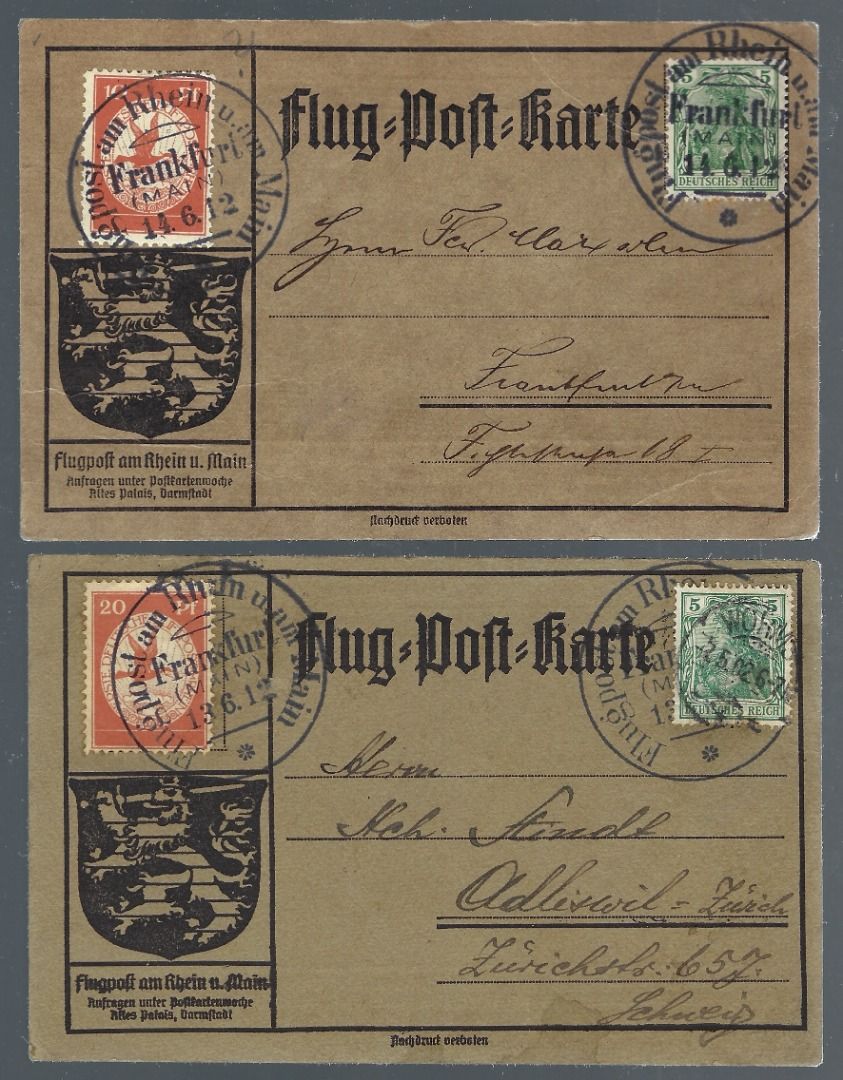 10 Pf
Flugpost am Rhein u. am Main
Frankfurt
(MAIN)
14.6.12
Flug=Post=Karte
5 5
DEUTSCHES REICH
Flugpost am Rhein u. am Main
Frankfurt
(MAIN)
14.6.12
Herrn
Frankfurt
18 I
Flugpost am Rhein u. Main
Anfragen unter Postkartenwoche
Altes Palais, Darmstadt
Nachdruck verboten
20 Pf
Flugpost am Rhein u. am Main
Frankfurt
(MAIN)
13.6.12
Flug=Post=Karte
5 5
DEUTSCHES REICH
WORMS
Herrn
Hch.
Adliswil=Zürich
Zürichstr. 657.
Schweiz
Flugpost am Rhein u. Main
Anfragen unter Postkartenwoche
Altes Palais, Darmstadt
Nachdruck verboten